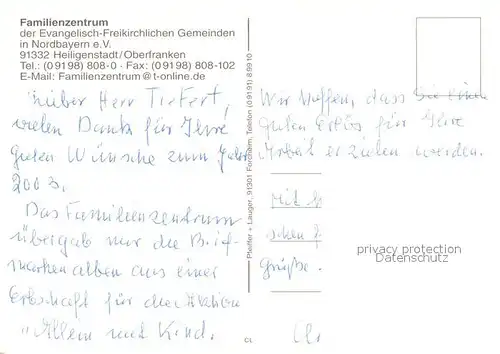 Familienzentrum
der Evangelisch-Freikirchlichen Gemeinden
in Nordbayern e.V.
91332 Heiligenstadt/Oberfranken
Tel.: (09198) 808-0 · Fax: (09198) 808-102
E-Mail: Familienzentrum@t-online.de
Lieber Herr Tiefert,
vielen Dank für Ihre
guten Wünsche zum Jahr
2003.
Das Familienzentrum
übergab mir die Brief-
markenalben aus einer
Erbschaft für die Aktion
"Allein mit Kind.
Pfeiffer + Lauger, 91301 Forchheim, Telefon (09191) 89910
CL
Wir hoffen, dass Sie einen
guten Erlös für Ihre
Arbeit erzielen werden.
Mit
schen
Grüße
privacy protection
Datenschutz